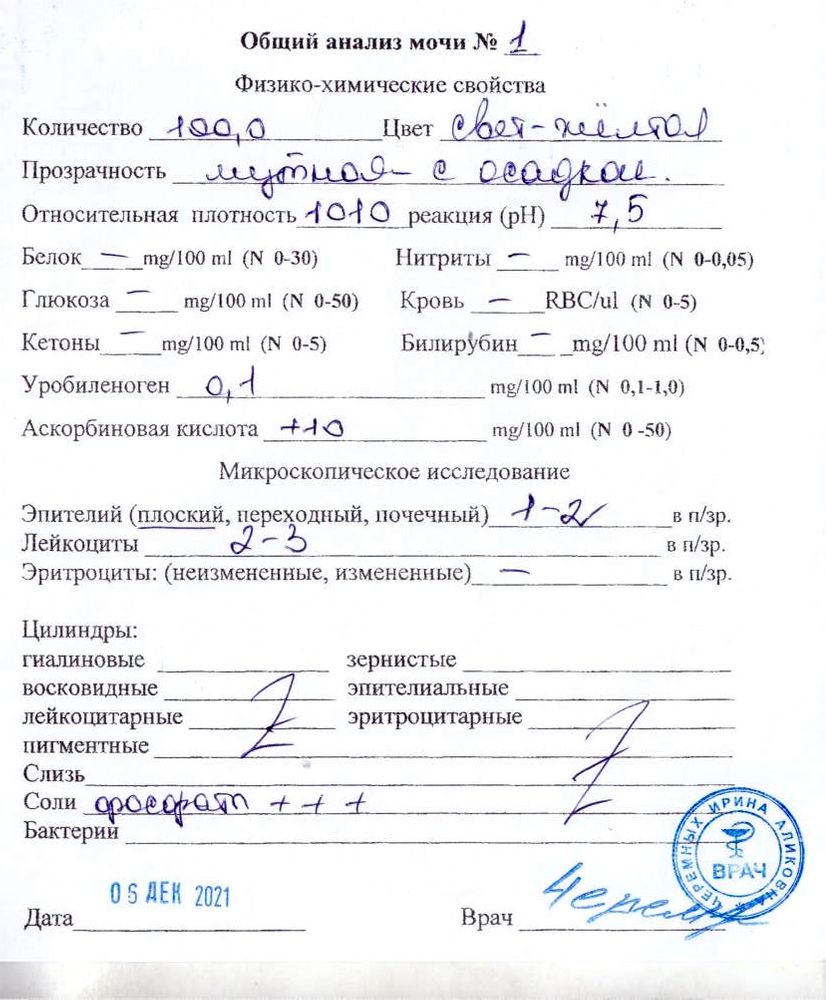 Общий анализ мочи № 1
Физико-химические свойства
Количество 100,0 Цвет свет-жёлтая
Прозрачность мутная с осадком.
Относительная плотность 1010 реакция (pH) 7,5
Белок — mg/100 ml (N 0-30) Нитриты — mg/100 ml (N 0-0,05)
Глюкоза — mg/100 ml (N 0-50) Кровь — RBC/ul (N 0-5)
Кетоны — mg/100 ml (N 0-5) Билирубин — mg/100 ml (N 0-0,5)
Уробиленоген 0,1 mg/100 ml (N 0,1-1,0)
Аскорбиновая кислота +10 mg/100 ml (N 0 -50)
Микроскопическое исследование
Эпителий (плоский, переходный, почечный) 1-2 в п/зр.
Лейкоциты 2-3 в п/зр.
Эритроциты: (неизмененные, измененные) — в п/зр.
Цилиндры:
гиалиновые зернистые
восковидные эпителиальные
лейкоцитарные эритроцитарные
пигментные
Слизь
Соли фосфаты + + +
Бактерии
ЧЕРЕМНЫХ ИРИНА АЛИКОВНА
ВРАЧ
06 ДЕК 2021
Дата Врач